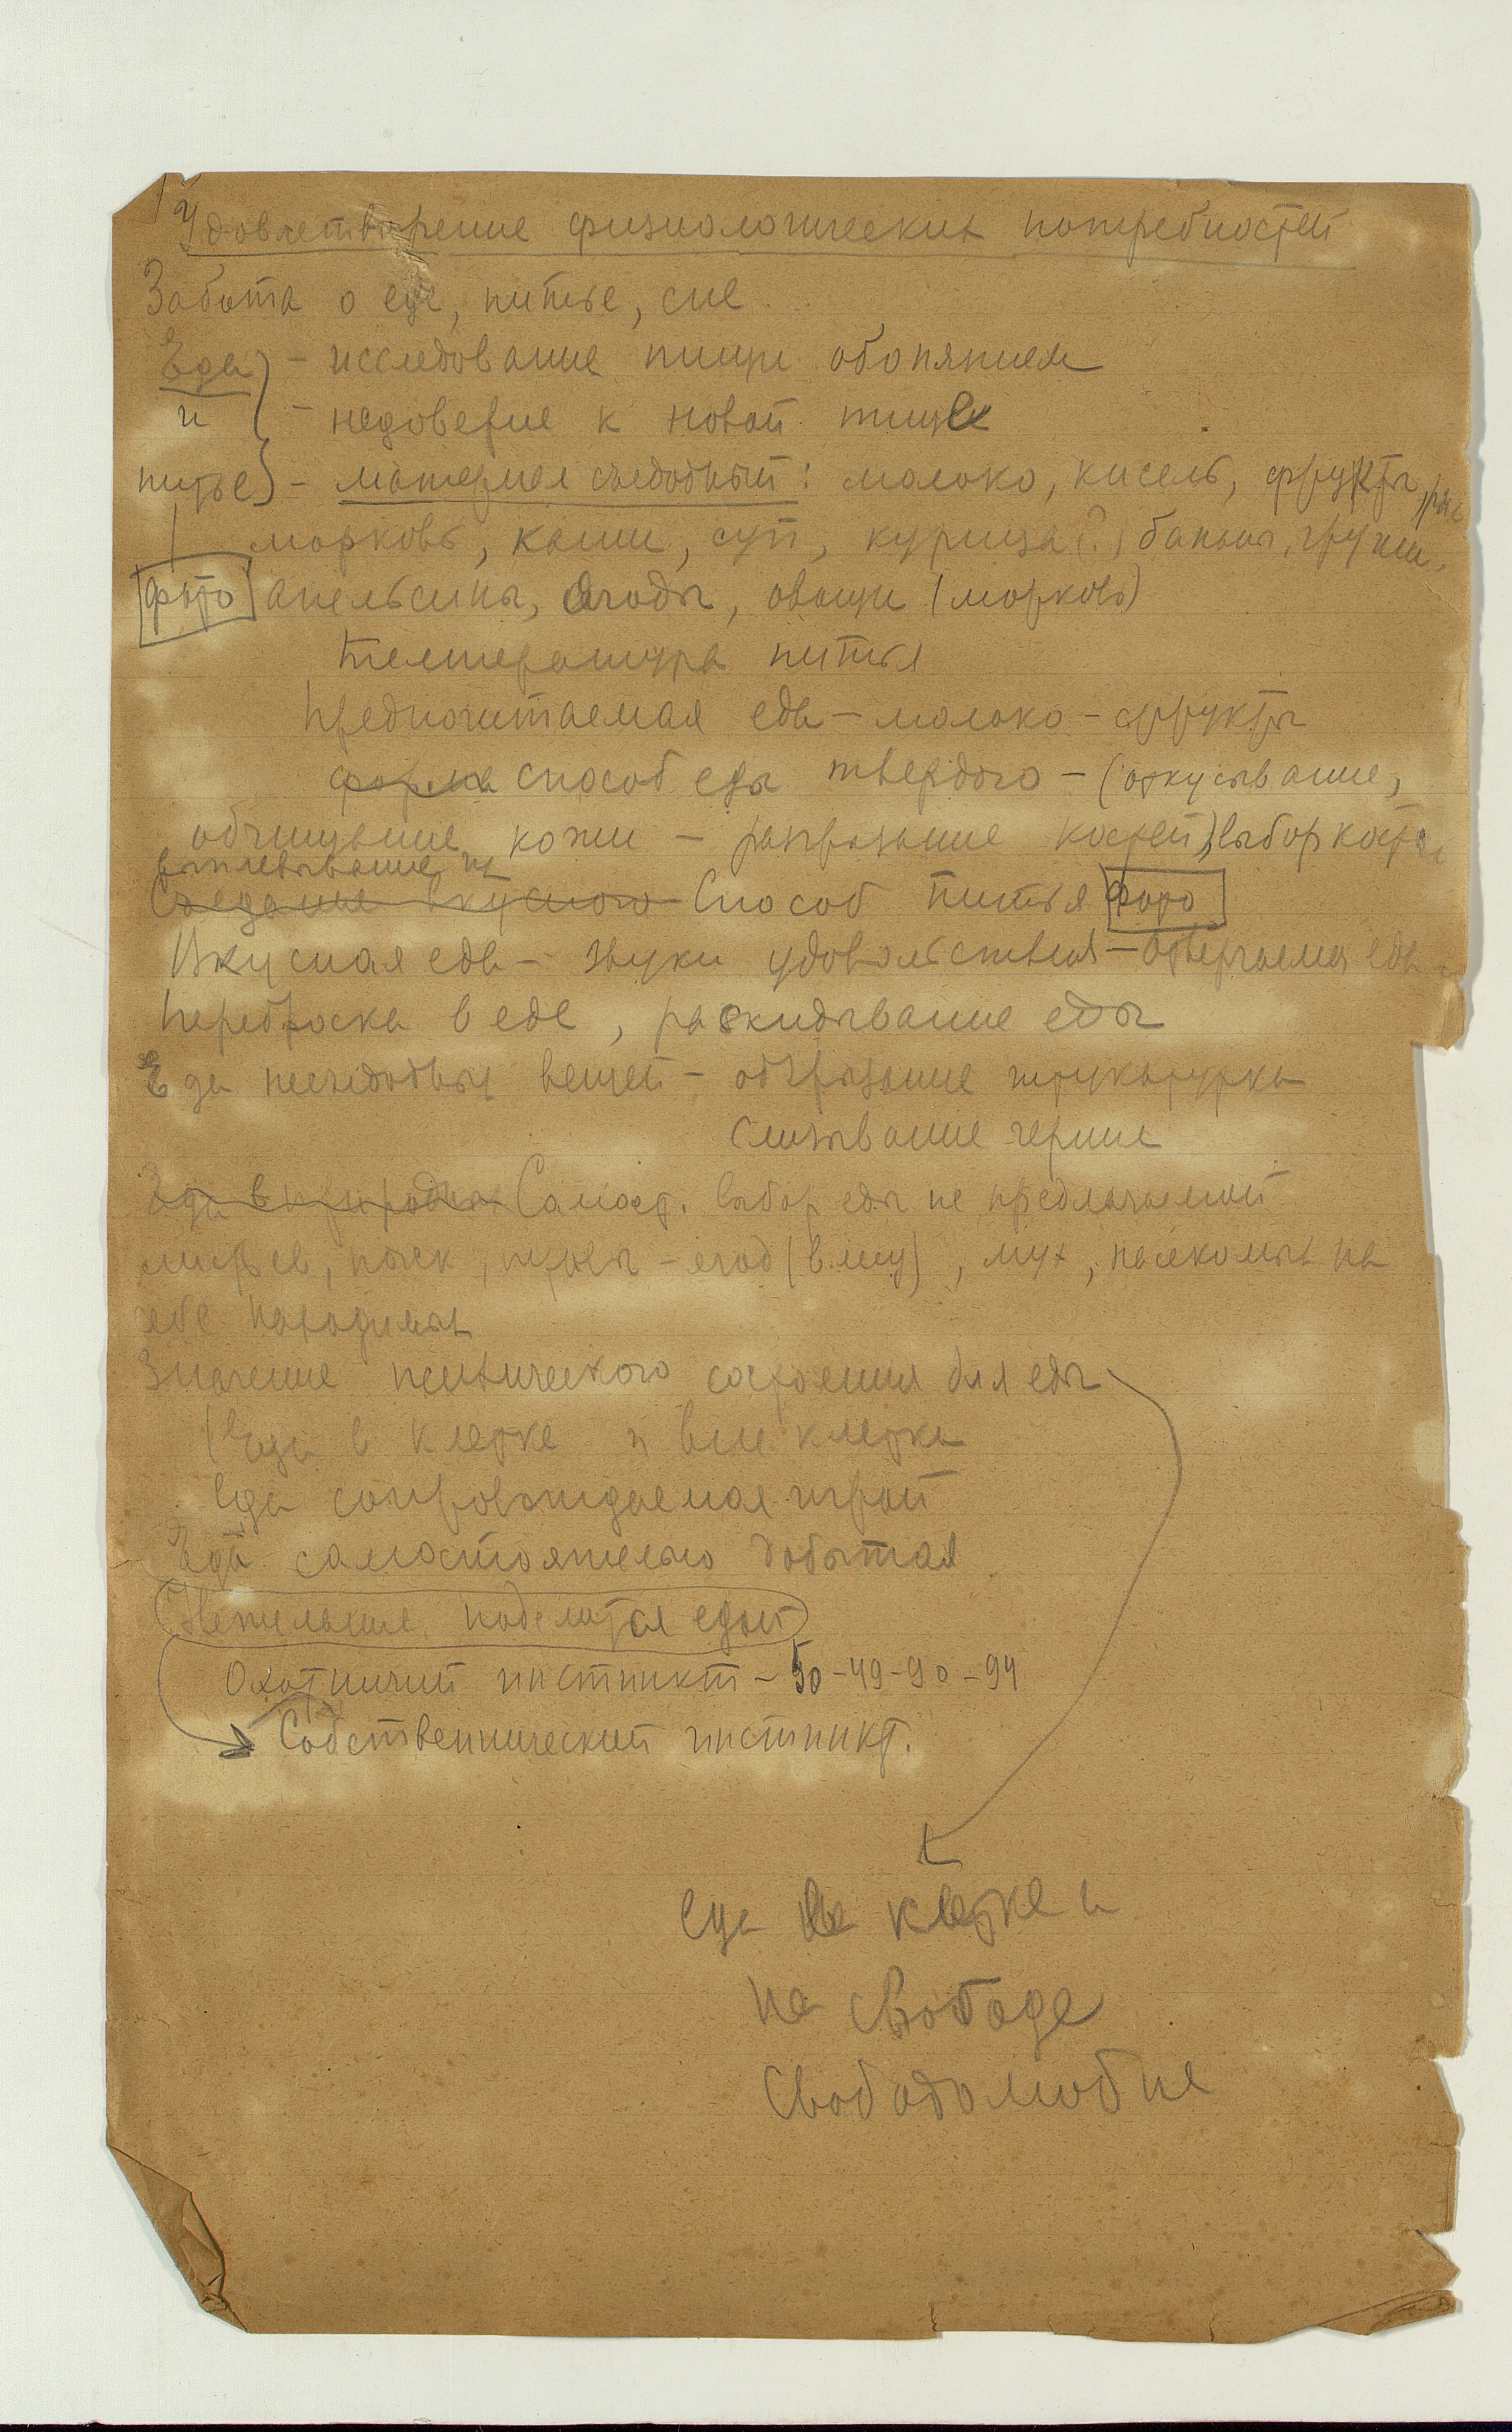 Удовлетворение физиологических потребностей
Забота о еде, питье, сне
Еда - исследование пищи обонянием
и - недоверие к новой пище
питье) - материал съедобный: молоко, кисель, фрукты,
морковь, каши, суп, курица (?) бананы, груши,
фото апельсины, ягоды, овощи (морковь)
температура питья
Предпочитаемая еда - молоко - фрукты
форма способ еды твердого - (откусывание,
обчищение кожи - разгрызание костей) выбор
выплевывание их
Съедание вкусного Способ питья фото
Вкусная еда - звуки удовольствия - отвергаемая еда
Переброска в еде, раскидывание еды
Еда несъедобных вещей - обгрызание штукатурки
слизывание чернил
Еда в природных Самост. выбор еды не предлагаемой
листьев, почек, травы - ягод (в лесу), мух, насекомых на
себе находимых
Значение психического состояния для еды
(Еда в клетке и вне клетки
Еда сопровождаемая игрой
Еда самостоятельно добытая
Нежелание поделиться едой
Охотничий инстинкт - 50-49-90-94
Собственнический инстинкт.
Еда в клетке и
на свободе
Свободолюбие